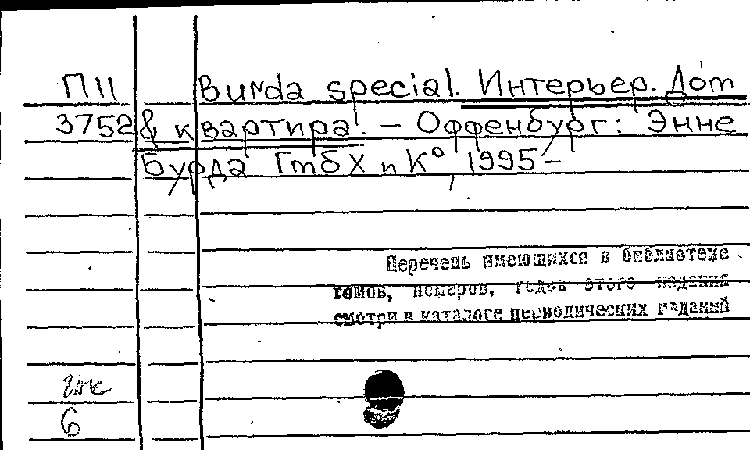 П11 Burda special. Интерьер. Дом
3752 & квартира. – Оффенбург: Энне
Бурда ГтбХ и К°, 1995–
Перечень имеющихся в библиотеке
томов, номеров, годов этого издания
смотри в каталоге периодических изданий
6